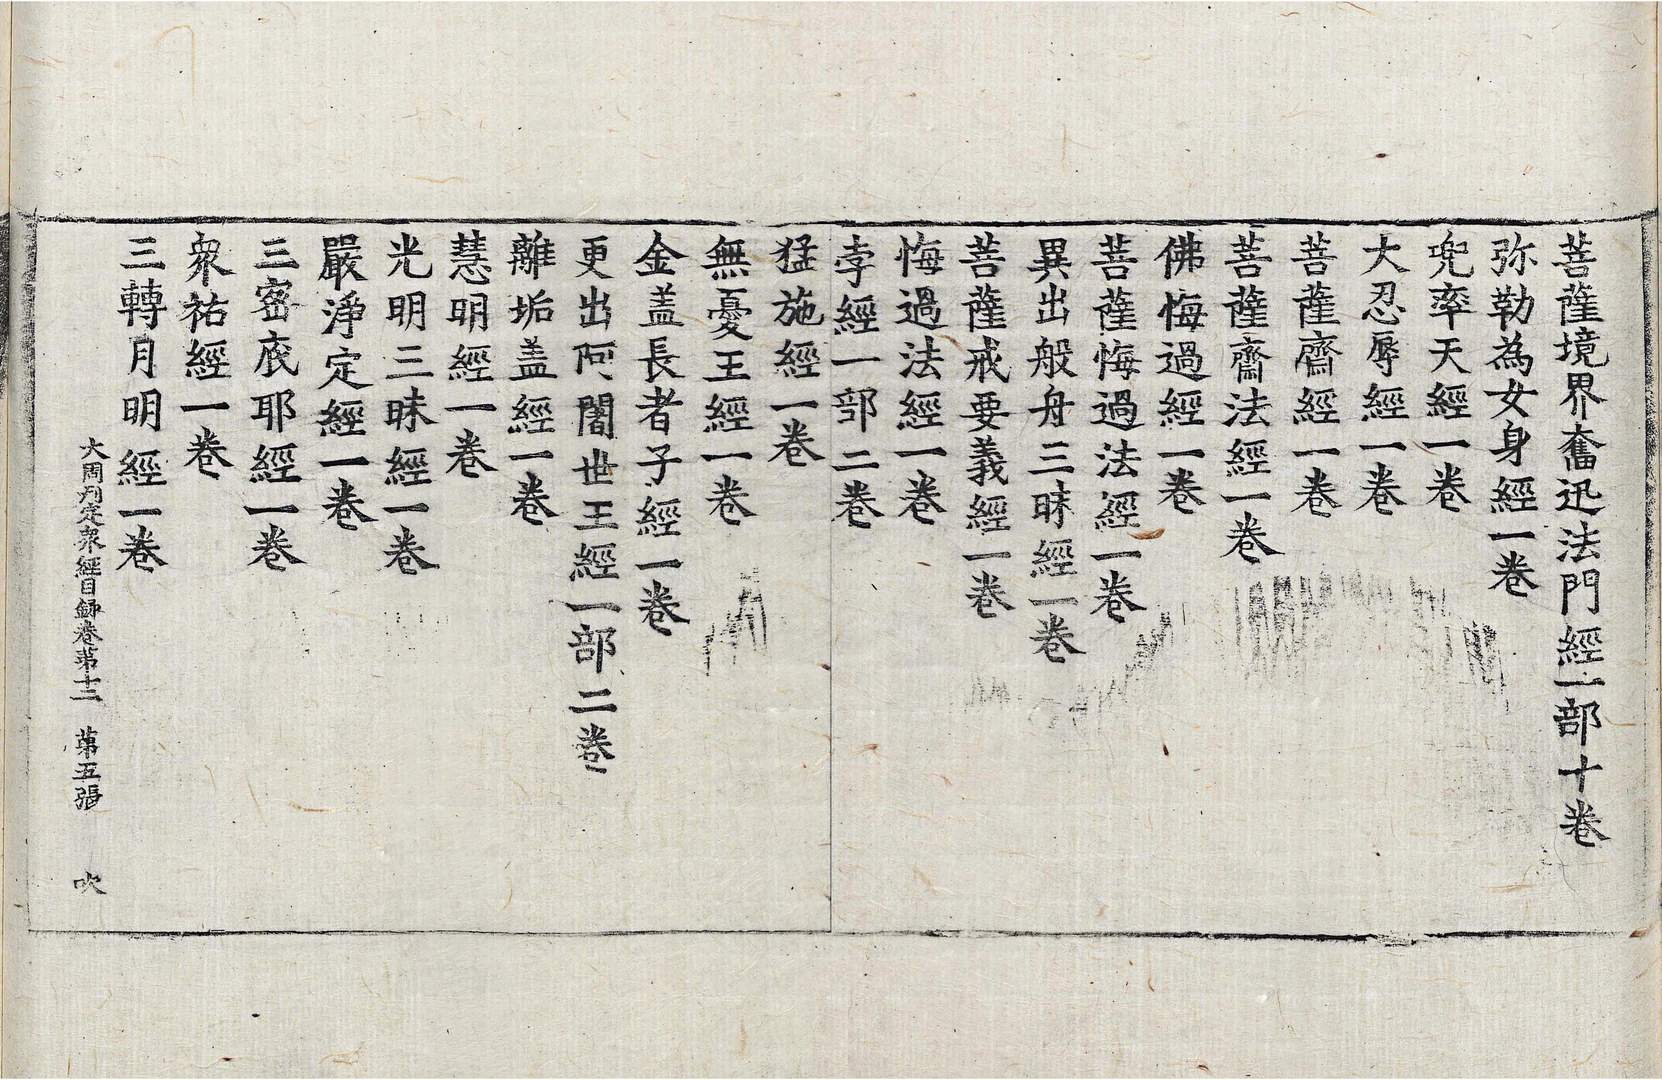 菩薩境界奮迅法門經一部十卷
弥勒為女身經一卷
兜率天經一卷
大忍辱經一卷
菩薩齋經一卷
菩薩齋法經一卷
佛悔過經一卷
菩薩悔過法經一卷
異出般舟三昧經一卷
菩薩戒要義經一卷
悔過法經一卷
孛經一部二卷
猛施經一卷
無憂王經一卷
金盖長者子經一卷
更出阿闍世王經一部二卷
離垢盖經一卷
慧明經一卷
光明三昧經一卷
嚴淨定經一卷
三密底耶經一卷
衆祐經一卷
三轉月明經一卷
大周刋定衆經目錄卷苐十二 苐五張 吹